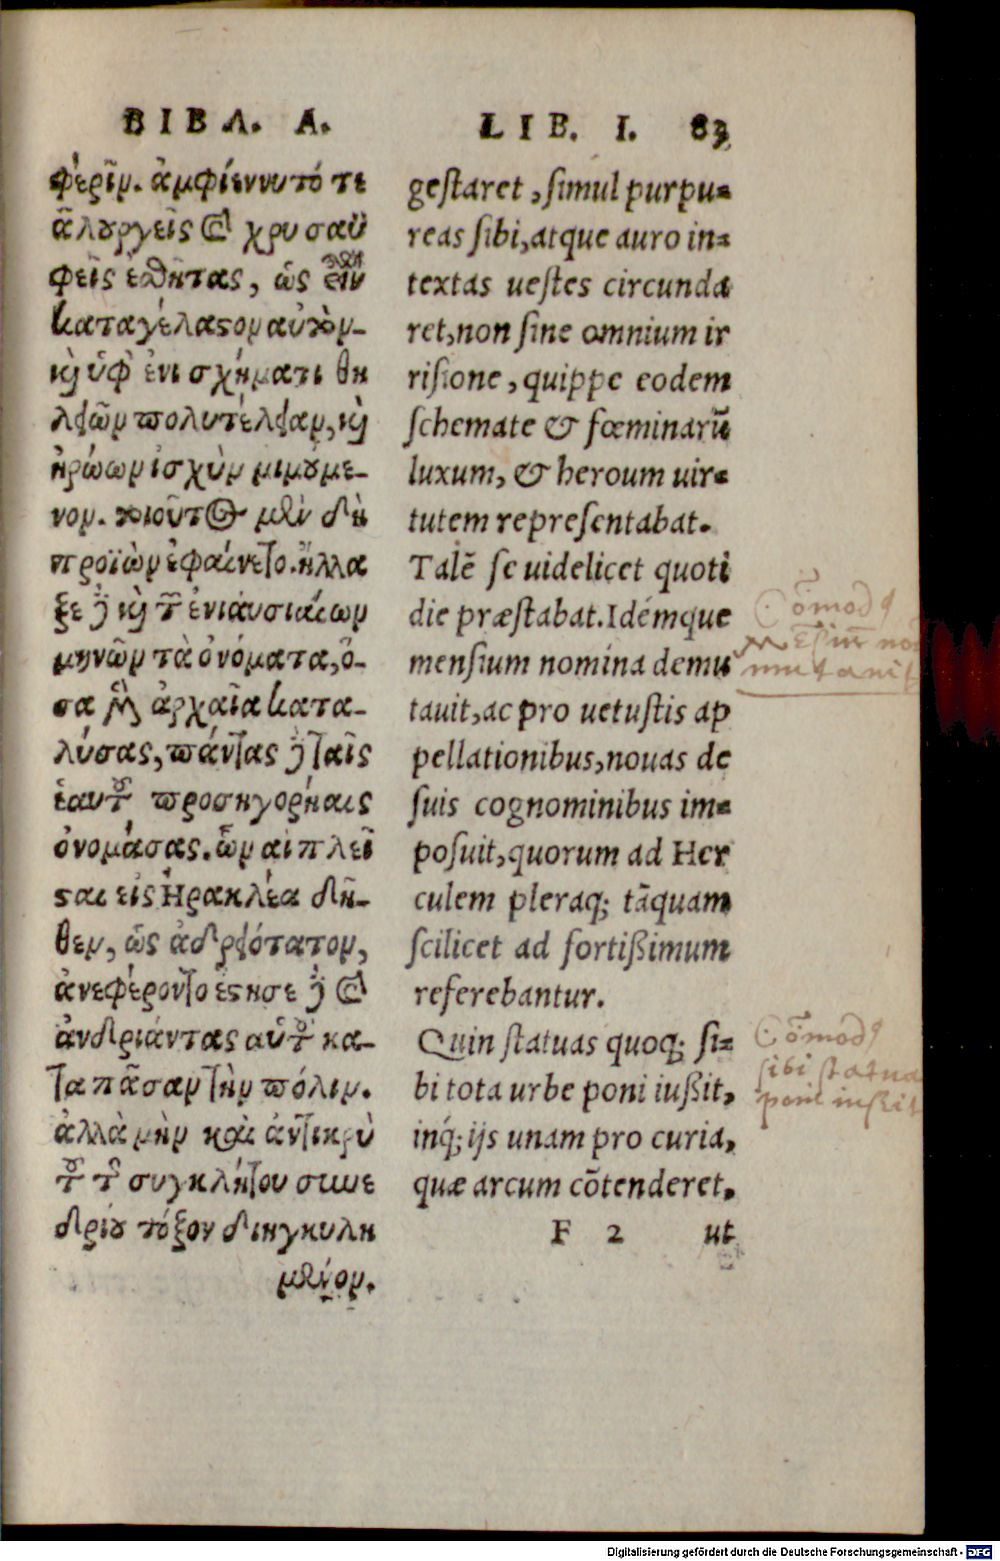 ΒΙΒΛ. Α.
φέρειν. ἀμφιέννυτό τε
ἁλουργεῖς καὶ χρυσοϋ
φεῖς ἐσθῆτας, ὡς εἶναι
καταγέλαστον αὐτὸν
καὶ ὑφ' ἑνὶ σχήματι θη
λειῶν πολυτέλειαν, καὶ
ἡρώων ἰσχὺν μιμούμε-
νον. τοιοῦτος μὲν δὴ
προϊὼν ἐφαίνετο. ἤλλα
ξε δὲ καὶ τῶν ἐνιαυσιαίων
μηνῶν τὰ ὀνόματα, ὅ-
σα μὲν ἀρχαῖα κατα-
λύσας, πάντας δὲ ταῖς
ἑαυτοῦ προσηγορίαις
ὀνομάσας. ὧν αἱ πλεῖ
σται εἰς Ἡρακλέα δῆ-
θεν, ὡς ἀνδρειότατον,
ἀνεφέροντο ἔστησε δὲ καὶ
ἀνδριάντας αὑτοῦ κα-
τα πᾶσαν τὴν πόλιν.
ἀλλὰ μὴν καὶ ἀντικρὺ
τοῦ τῆς συγκλήτου συνε
δρίου τόξον διηγκυλη
μένον.
LIB. I. 83
gestaret, simul purpu=
reas sibi, atque auro in=
textas uestes circunda
ret, non sine omnium ir
risione, quippe eodem
schemate & fœminarū
luxum, & heroum uir=
tutem repræsentabat.
Talē se uidelicet quoti
die præstabat. Idémque
mensium nomina demu
tauit, ac pro uetustis ap
pellationibus, nouas de
suis cognominibus im=
posuit, quorum ad Her
culem pleraq; tāquam
scilicet ad fortißimum
referebantur.
Quin statuas quoq; si=
bi tota urbe poni iußit,
inq́; ijs unam pro curia,
quæ arcum cōtenderet,
F 2 ut
Cōmod9
mutauit
Cōmod9
sibi statuas
poni iußit